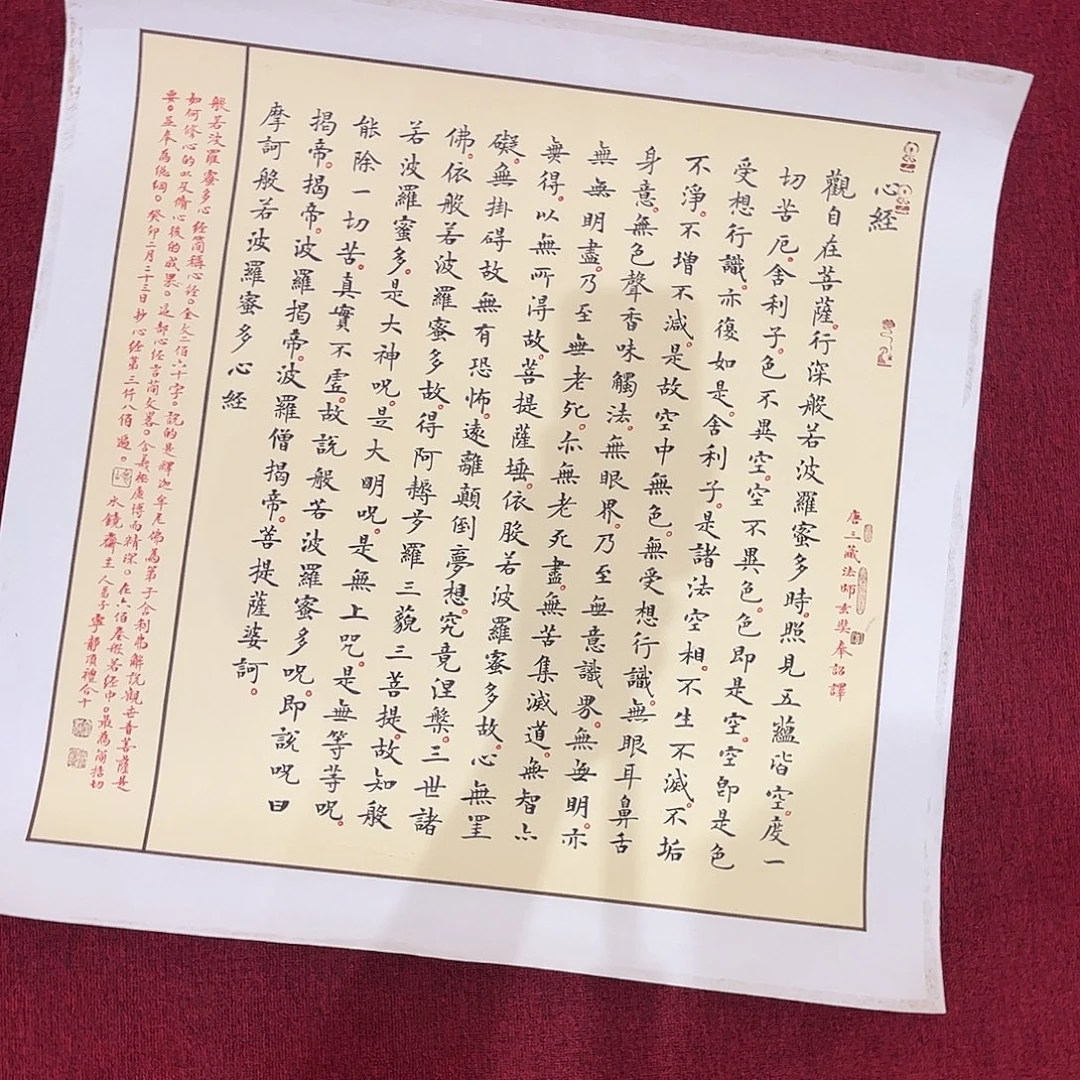 心經
唐三藏法師玄奘奉詔譯
觀自在菩薩。行深般若波羅蜜多時。照見五蘊皆空。度一
切苦厄。舍利子。色不異空。空不異色。色即是空。空即是色
受想行識。亦復如是。舍利子。是諸法空相。不生不滅。不垢
不淨。不增不減。是故空中無色。無受想行識。無眼耳鼻舌
身意。無色聲香味觸法。無眼界。乃至無意識界。無無明亦
無無明盡。乃至無老死。亦無老死盡。無苦集滅道。無智亦
無得。以無所得故。菩提薩埵。依般若波羅蜜多故。心無罣
礙。無掛碍故無有恐怖。遠離顛倒夢想。究竟涅槃。三世諸
佛。依般若波羅蜜多故。得阿耨多羅三藐三菩提。故知般
若波羅蜜多。是大神咒。是大明咒。是無上咒。是無等等咒。
能除一切苦。真實不虛。故說般若波羅蜜多咒。即說咒曰
揭帝。揭帝。波羅揭帝。波羅僧揭帝。菩提薩婆訶。
摩訶般若波羅蜜多心經
般若波羅蜜多心經簡稱心經。全文二佰六十字。說的是釋迦牟尼佛為弟子舍利弗解說觀世音菩薩是
如何修心的以及修心後的成果。這部心經言簡文畧。含義極廣博而精深。在六佰卷般若經中。最為簡括切
要。並奉為總綱。癸卯二月二十三日抄心經第三仟八佰遍。水鏡齋主人寧靜頂禮合十